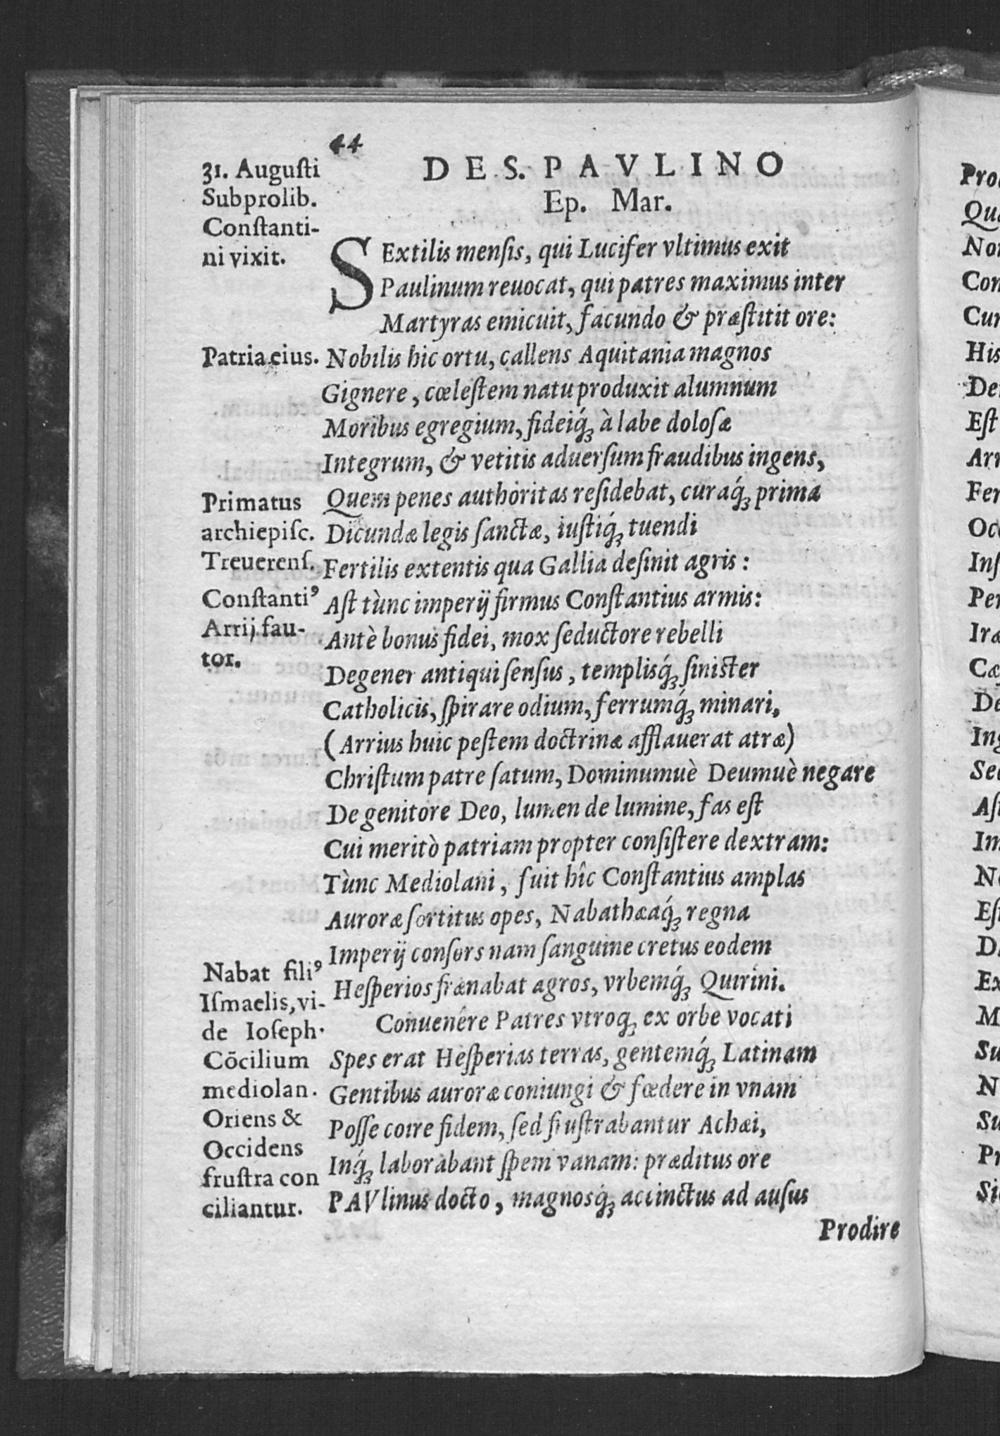 44
DE S. PAVLINO
Ep. Mar.
31. Augusti
Sub prolib.
Constanti-
ni vixit.
SExtilis mensis, qui Lucifer vltimus exit
Paulinum reuocat, qui patres maximus inter
Martyras emicuit, facundo & præstitit ore:
Patria eius.
Nobilis hic ortu, callens Aquitania magnos
Gignere, cœlestem natu produxit alumnum
Moribus egregium, fideiq́ꝫ à labe dolosæ
Integrum, & vetitis aduersum fraudibus ingens,
Primatus
archiepisc.
Treuerens.
Quem penes authoritas residebat, curaq́ꝫ prima
Dicundæ legis sanctæ, iustiq́ꝫ tuendi
Fertilis extentis qua Gallia desinit agris:
Constantiꝰ
Arrij fau-
tor.
Ast tùnc imperij firmus Constantius armis:
Antè bonus fidei, mox seductore rebelli
Degener antiqui sensus, templisq́ꝫ sinister
Catholicis, spirare odium, ferrumq́ꝫ minari,
(Arrius huic pestem doctrinæ afflauerat atræ)
Christum patre satum, Dominumuè Deumuè negare
De genitore Deo, lumen de lumine, fas est
Cui meritò patriam propter consistere dextram:
Tùnc Mediolani, fuit hîc Constantius amplas
Auroræ sortitus opes, Nabathæaq́ꝫ regna
Imperij consors nam sanguine cretus eodem
Hesperios frænabat agros, vrbemq́ꝫ Quirini.
Nabat filiꝰ
Ismaelis, vi-
de Ioseph.
Cōcilium
mediolan.
Oriens &
Occidens
frustra con
ciliantur.
Conuenêre Patres vtroqꝫ ex orbe vocati
Spes erat Hesperias terras, gentemq́ꝫ Latinam
Gentibus auroræ coniungi & fœdere in vnam
Posse coire fidem, sed frustrabantur Achæi,
Inq́ꝫ laborabant spem vanam: præditus ore
PAVlinus docto, magnosq́ꝫ accinctus ad ausus
Prodire
Pro
Qua
Non
Con
Cur
His
De
Est
Arr
Fer
Occ
Ins
Per
Iræ
Cæ
De
Ing
Sed
Ast
Im
Ne
Est
D
Ex
M
Su
N
Su
Pr
Si